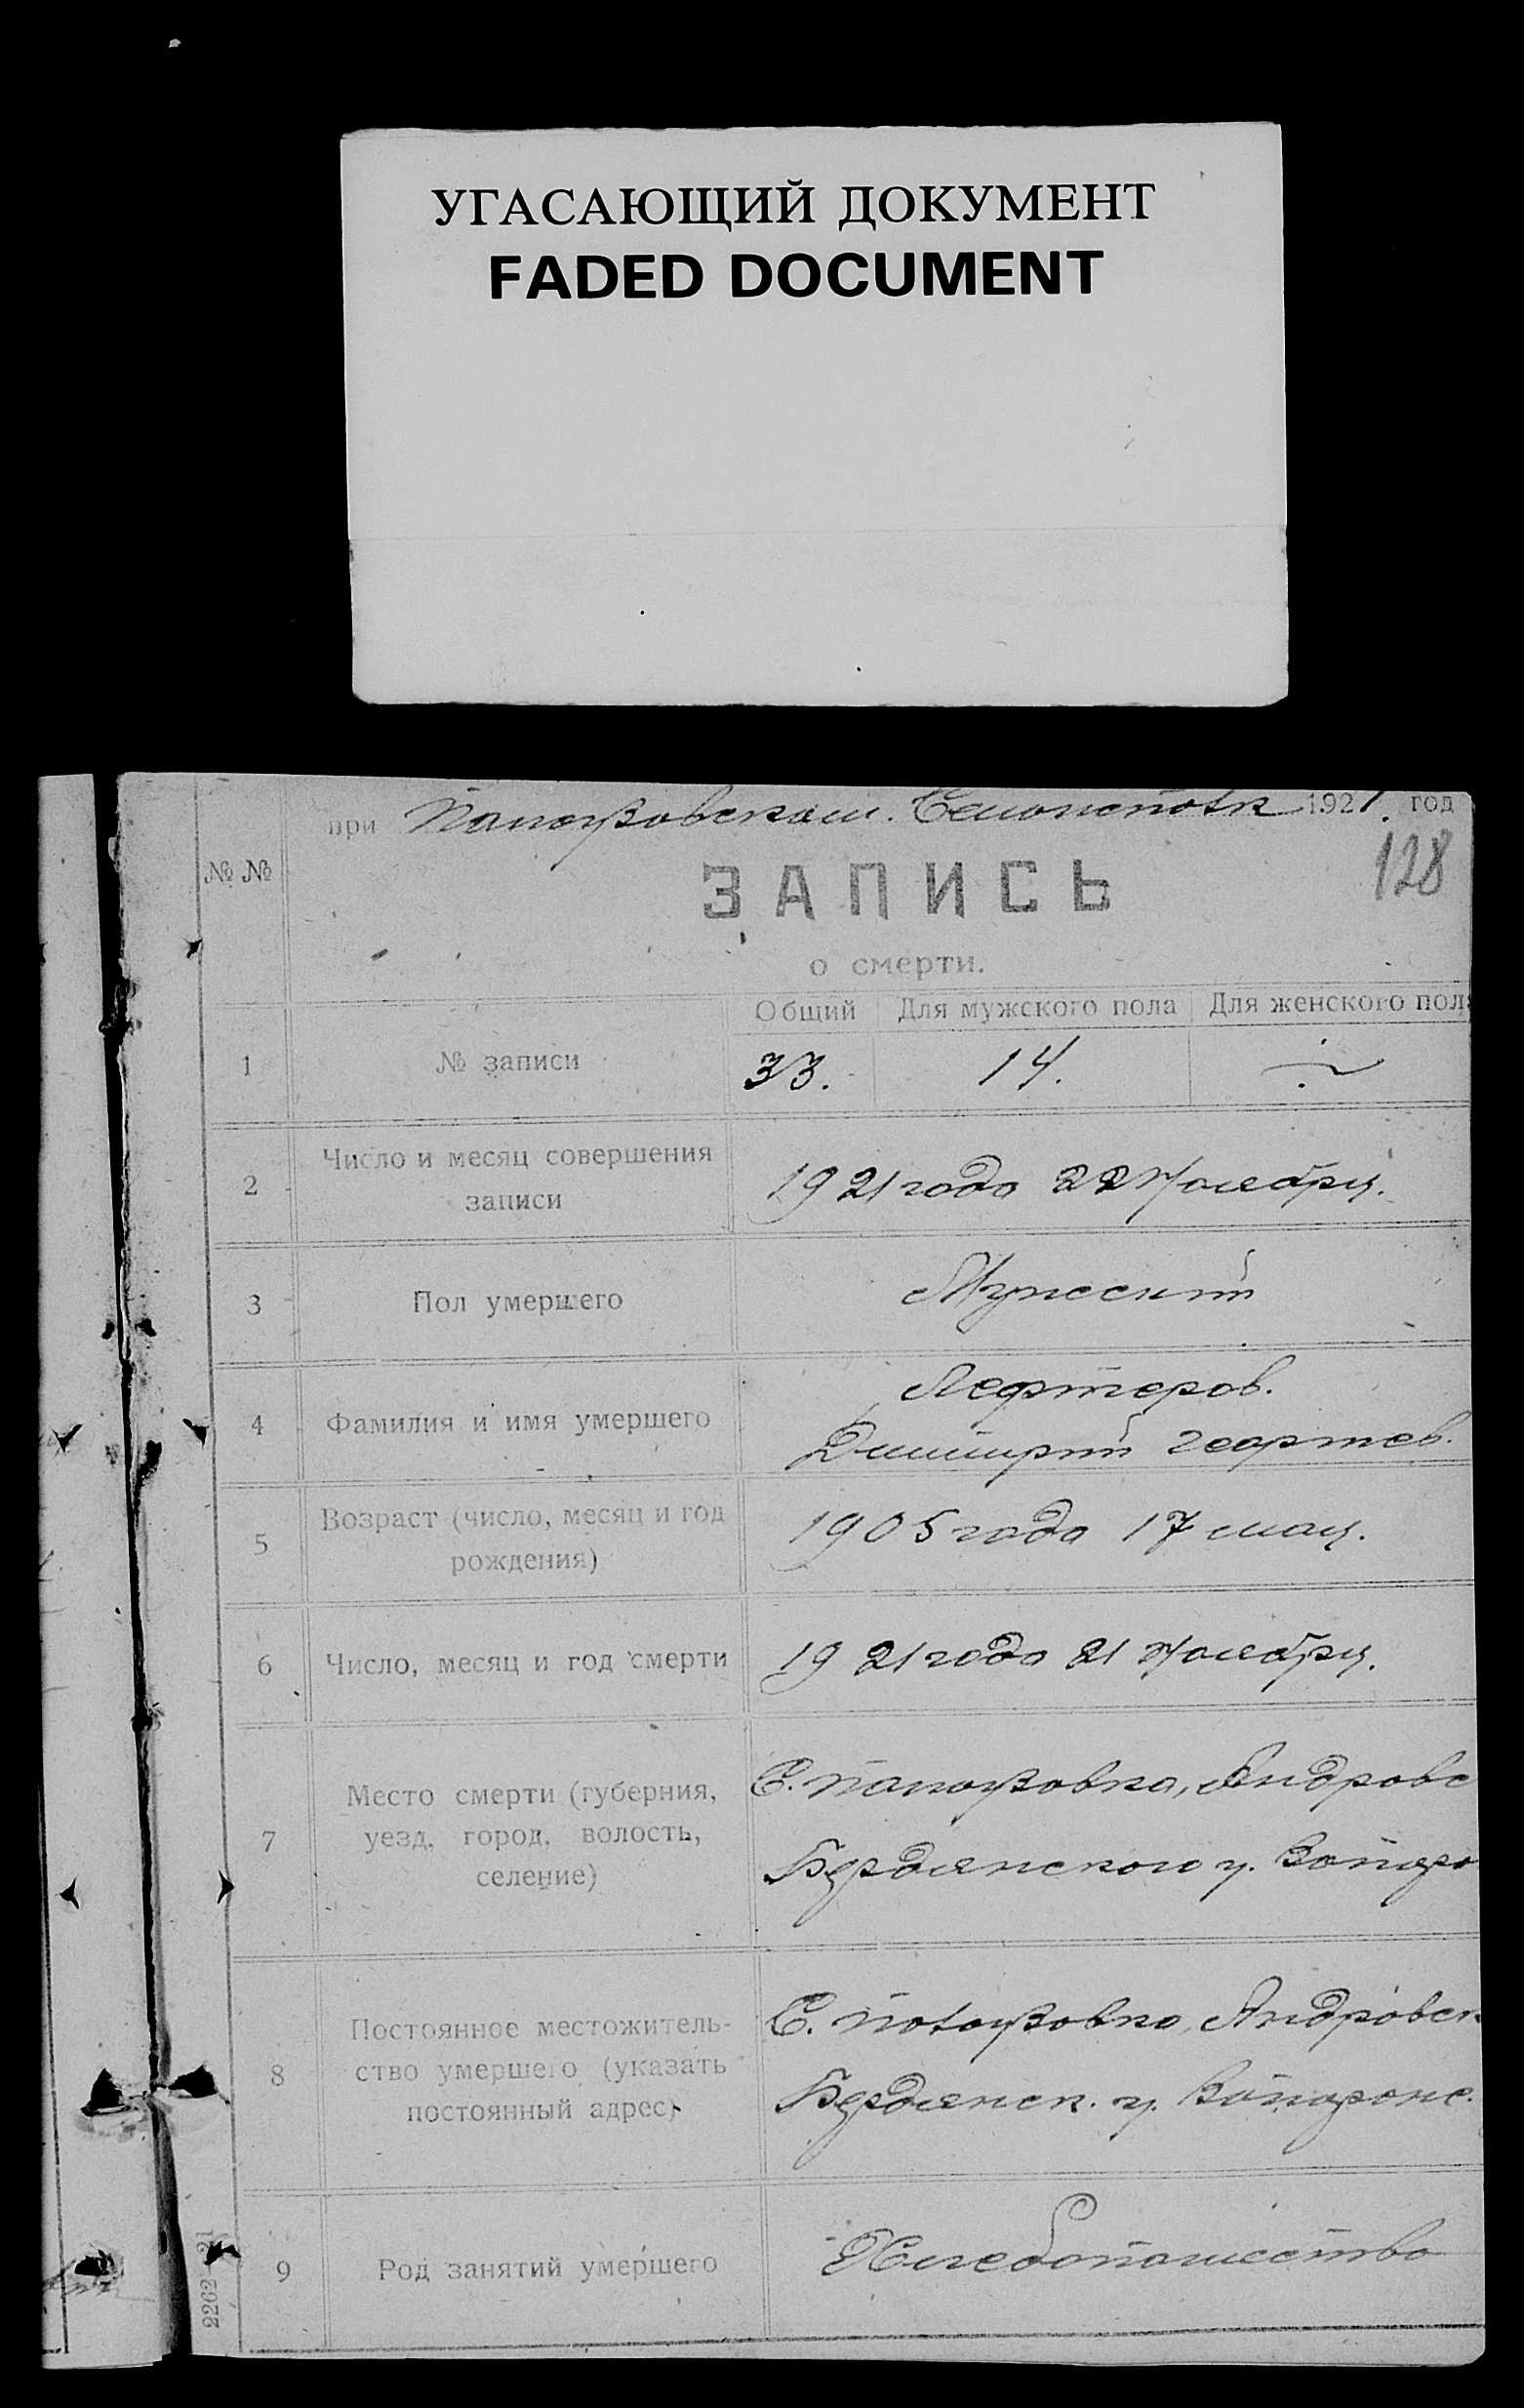 УГАСАЮЩИЙ ДОКУМЕНТ
FADED DOCUMENT
при 1921. год
№ №
128
ЗАПИСЬ
о смерти.
Общий Для мужского пола Для женского пол
1 № записи 33. 14.
2 Число и месяц совершения записи
1921 года 22 Ноября.
3 Пол умершего Мужский
Лефтеров.
4 Фамилия и имя умершего
Димитрий Георгиев.
5 Возраст (число, месяц и год рождения)
1905 года 17 мая.
6 Число, месяц и год смерти 1921 года 21 Ноября.
7 Место смерти (губерния,
уезд, город, волость,
селение)
С. Андровс
Бердянского у. Запоро
8 Постоянное местожитель-
ство умершего (указать
постоянный адрес)
С. Андровск
Бердянск. у. Запорожс.
9 Род занятий умершего Хлебопашество
2262—21